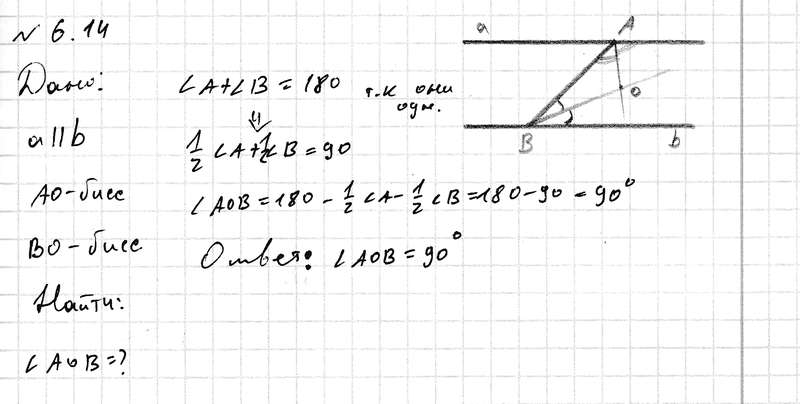 № 6.14
Дано:
a || b
AO-бисс
BO-бисс
Найти:
∠AOB=?
∠A+∠B=180 т.к они
одн.
⇓
1/2 ∠A+1/2∠B=90
∠AOB=180-1/2∠A-1/2∠B=180-90=90°
Ответ: ∠AOB=90°
a
A
O
B
b